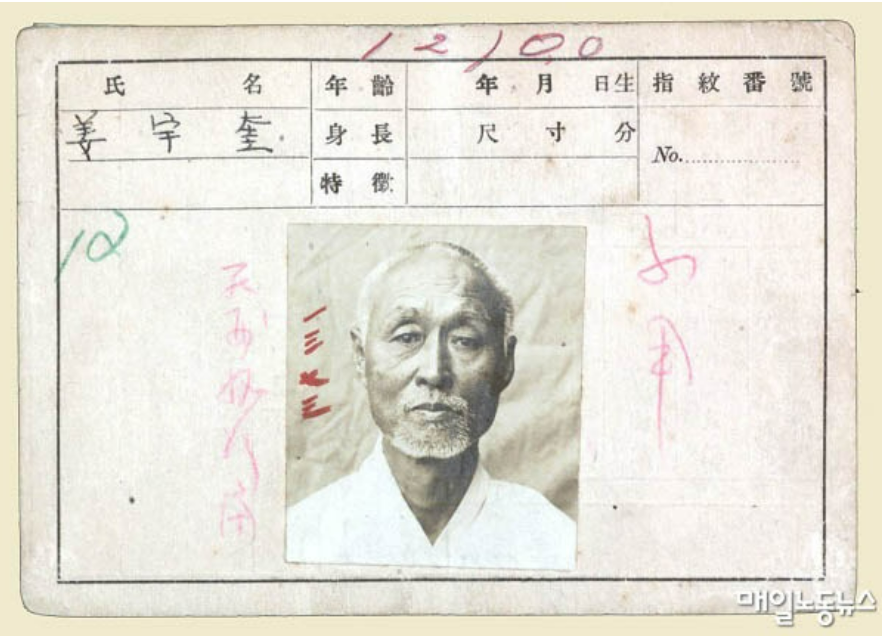 12100
氏 名 年 齡 年 月 日生 指 紋 番 號
姜 宇 奎 身 長 尺 寸 分
No.
特 徵
12
不用
一三七三
매일노동뉴스